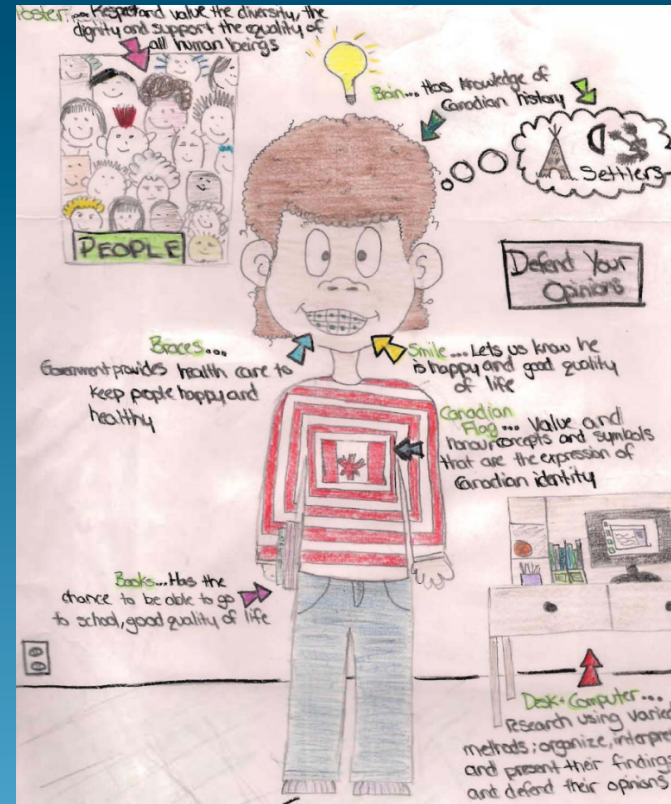 Poster... Respect and value the diversity, the
dignity and support the equality of
all human beings
PEOPLE
Brain... Has knowledge of
Canadian history
Settlers
Defend Your
Opinions
Braces...
Government provides health care to
keep people happy and
healthy
Smile... Lets us know he
is happy and good quality
of life
Canadian
Flag... Value and
honour concepts and symbols
that are the expression of
Canadian identity
Books... Has the
chance to be able to go
to school, good quality of life
Desk + Computer...
Research using varied
methods; organize, interpret
and present their findings
and defend their opinions